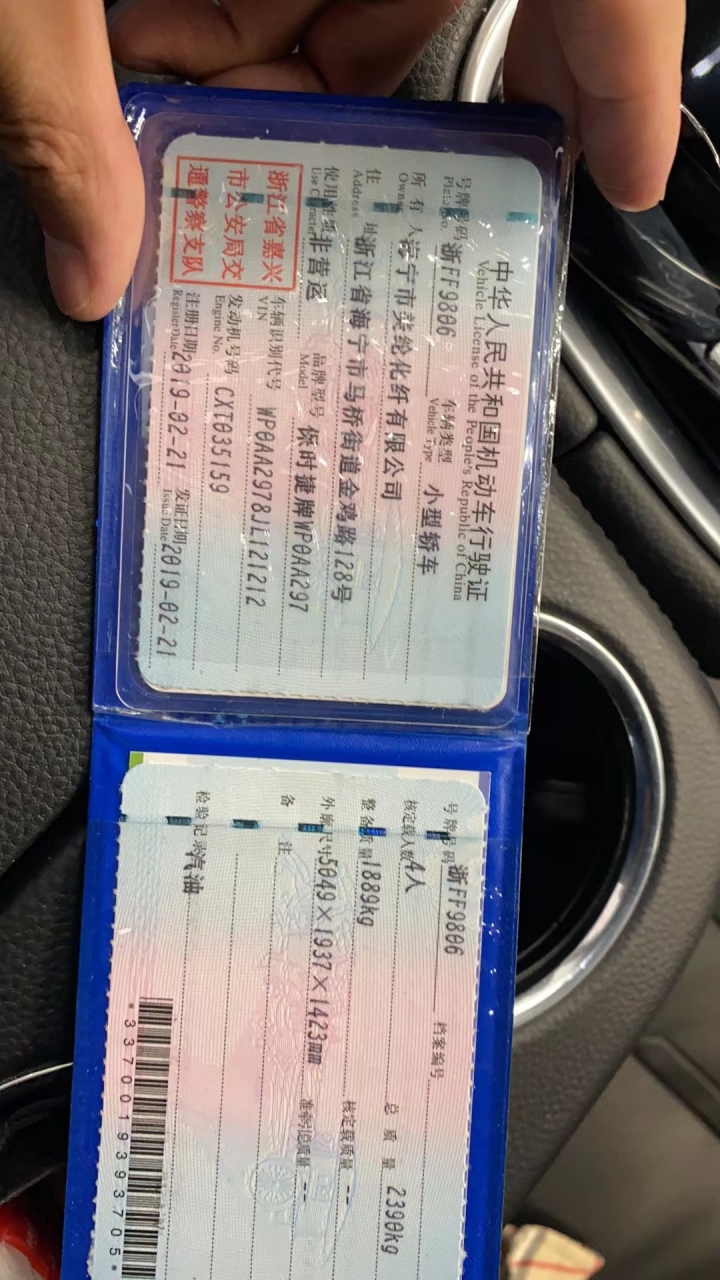 中华人民共和国机动车行驶证
Vehicle License of the People's Republic of China
号牌号码 浙FF9806 车辆类型 小型轿车
Plate No. Vehicle Type
所有人 海宁市 纶化纤有限公司
Owner
住址 浙江省海宁市马桥街道金鸡路128号
Address
使用性质 非营运 品牌型号 保时捷牌WP0AA297
Use Character Model
浙江省嘉兴
市公安局交
通警察支队
车辆识别代号 WP0AA2978JL121212
VIN
发动机号码 CXT035159
Engine No.
注册日期 2019-02-21 发证日期 2019-02-21
Register Date Issue Date
号牌号码 浙FF9806 档案编号
核定载人数 4人 总质量 2390kg
整备质量 1889kg 核定载质量 --
外廓尺寸 5049×1937×1423mm 准牵引总质量 --
备注
检验记录 汽油
*3370019393705*